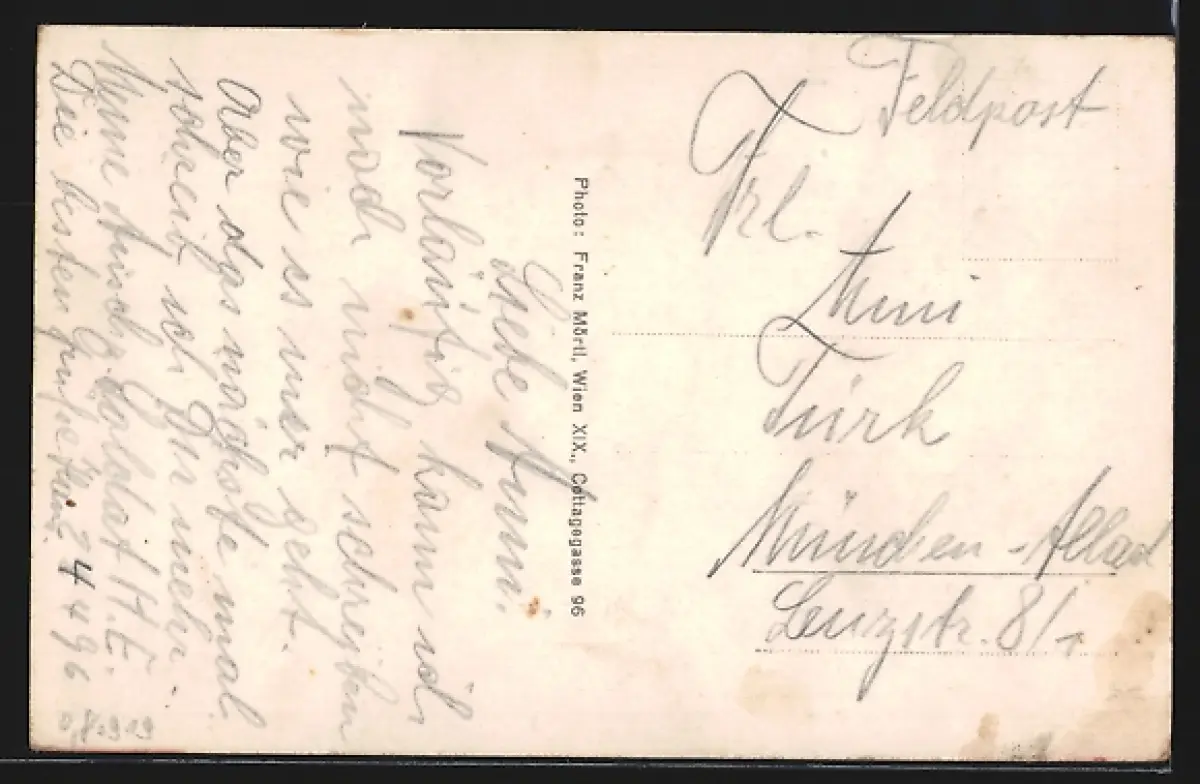 Feldpost
Frl.
Muni
Türk
München - Allach
Lenzstr. 8/1
Photo: Franz Mörtl, Wien XIX., Cottagegasse 96
Liebe Muni.
Vorläufig kann ich
noch nicht schreiben
wie es mir geht.
Aber das nächste mal
schreib ich Dir mehr.
Meine Anschr. Soldat H. E.
Die besten Grüße 24496